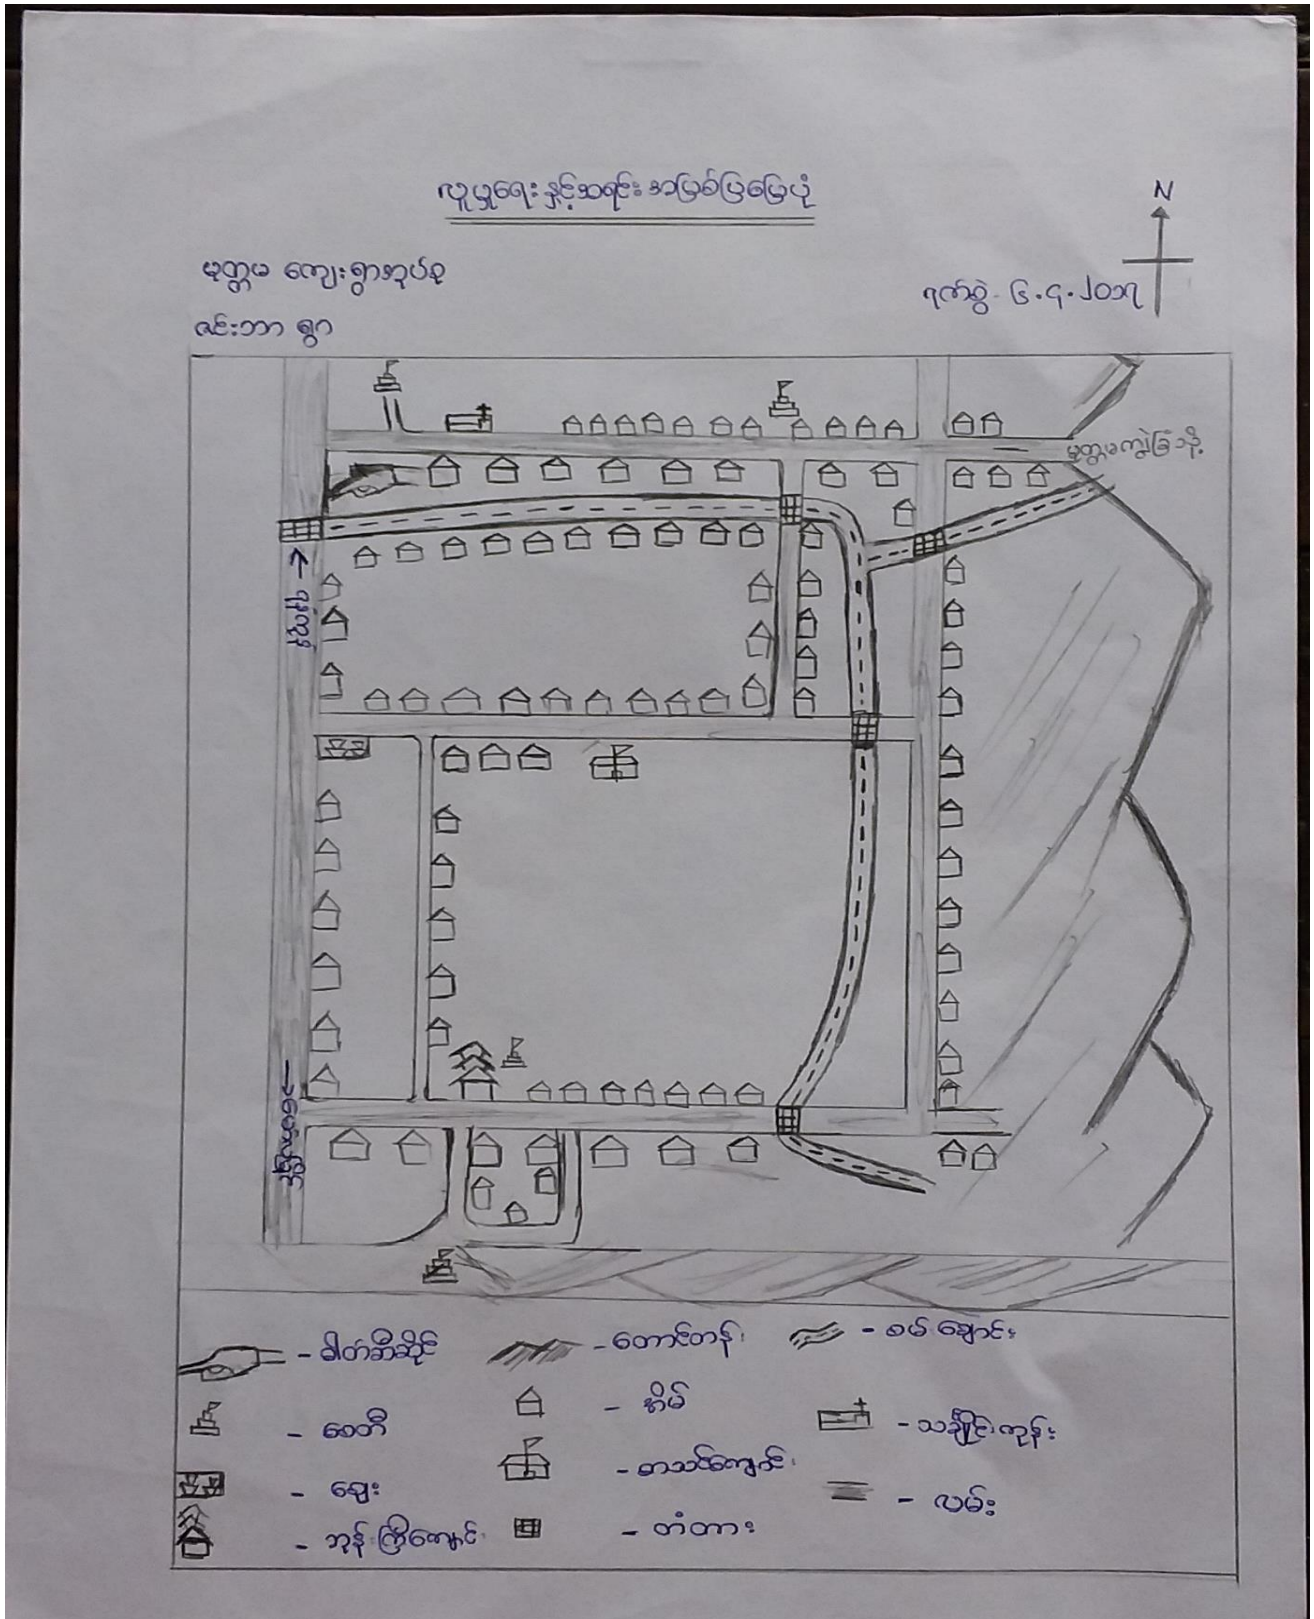 လူမှုရေးနှင့်အရင်းအမြစ်ပြမြေပုံ
N
မုတ္တမ ကျေးရွာအုပ်စု
ရက်စွဲ ၆.၄.၂၀၁၇
ဇင်းဘာ ရွာ
မုတ္တမကျွဲခြံသို့
- ဓါတ်ဆီဆိုင်
- တောင်တန်း
- စမ်းချောင်း
- စေတီ
- အိမ်
- သင်္ချိုင်းကုန်း
- ဈေး
- စာသင်ကျောင်း
- လမ်း
- ဘုန်းကြီးကျောင်း
- တံတား